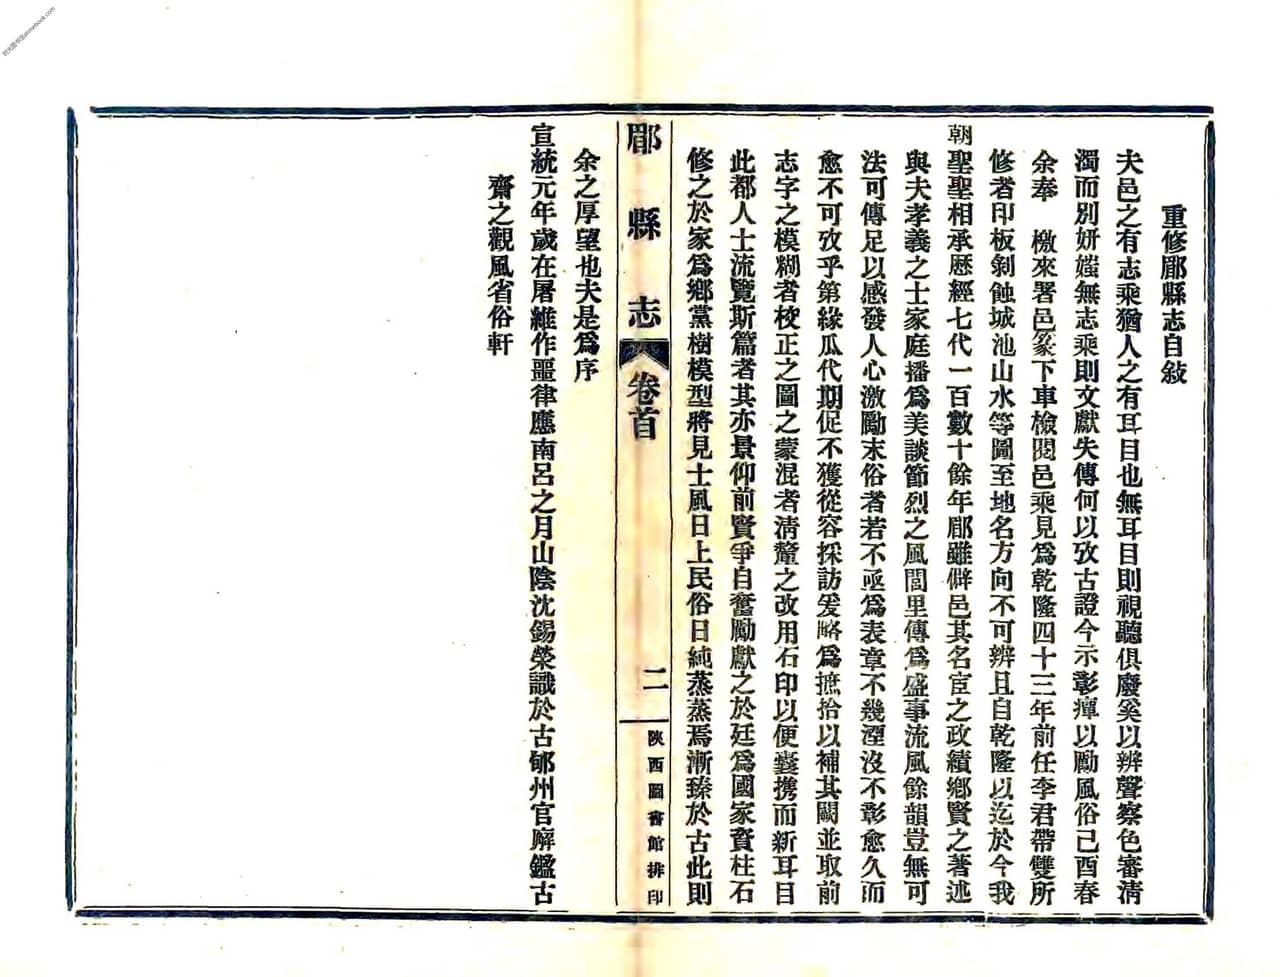 重修郿縣志自敍
夫邑之有志乘猶人之有耳目也無耳目則視聽俱廢奚以辨聲察色審淸
濁而別妍媸無志乘則文獻失傳何以攷古證今示彰癉以勵風俗己酉春
余奉 檄來署邑篆下車檢閱邑乘見爲乾隆四十三年前任李君帶雙所
修者印板剝蝕城池山水等圖至地名方向不可辨且自乾隆以迄於今我
朝聖聖相承歷經七代一百數十餘年郿雖僻邑其名宦之政績鄉賢之著述
與夫孝義之士家庭播爲美談節烈之風閭里傳爲盛事流風餘韻豈無可
法可傳足以感發人心激勵末俗者若不亟爲表章不幾湮沒不彰愈久而
愈不可攷乎第緣瓜代期促不獲從容採訪爰略爲摭拾以補其闕並取前
志字之模糊者校正之圖之蒙混者淸釐之改用石印以便囊携而新耳目
此都人士流覽斯篇者其亦景仰前賢爭自奮勵獻之於廷爲國家資柱石
修之於家爲鄉黨樹模型將見士風日上民俗日純蒸蒸焉漸臻於古此則
郿縣志 卷首 二 陝西圖書館排印
余之厚望也夫是爲序
宣統元年歲在屠維作噩律應南呂之月山陰沈錫榮識於古郇州官廨鑑古
齋之觀風省俗軒